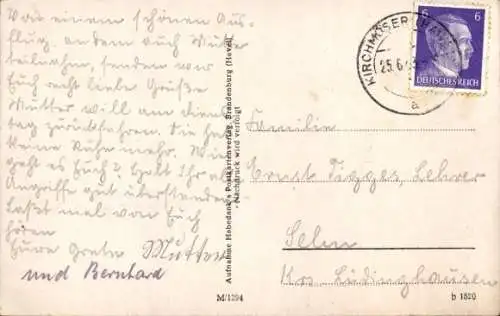 Von einem schönen Aus-
flug, an dem auch Mutter
teilnahm, senden wir
Euch recht liebe Grüße
Mutter will am Diens-
tag zurückfahren. Sie hat
keine Ruhe mehr. Wie
geht es Euch? Habt Ihr die
Angriffe gut überstanden
Laßt mal von Euch
hören
Eure Grete Mutter
und Bernhard
Aufnahme Habedank's Postkartenverlag, Brandenburg (Havel)
Nachdruck wird verfolgt
M/1294
KIRCHMÖSER
25.6.
a
6 6
DEUTSCHES REICH
Familie
Ernst Tigges, Lehrer
Selm
Krs. Lüdinghausen
b 1520